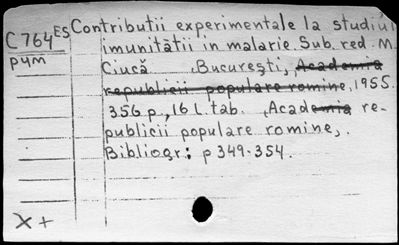 C 764 ES Contributii experimentale la studiul
рум imunitătii in malarie. Sub. red. M.
Ciucă. Bucureşti, Academia
republicii populare romine, 1955.
356 p., 16 l. tab. (Academia re-
publicii populare romine).
Bibliogr.: p 349-354.
X+